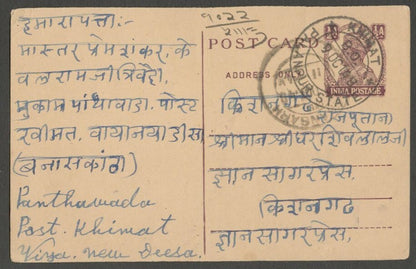 हमारा पता:-
मास्तर प्रेमशंकर, के
वलरामजी त्रिवेदी,
मुकाम पांथावाडा. पोस्ट
खीमत. वाया नया डीसा
(बनासकांठा)
Panthawada
Post. Khimat
Viya. New Deesa.
9022
21115
POST CARD
ADDRESS ONLY
INDIA POSTAGE
KHIMAT
STATE
श्रीमान श्रीधर शिवलालजी
ज्ञान सागर प्रेस.
किशनगढ
ज्ञानसागर प्रेस,